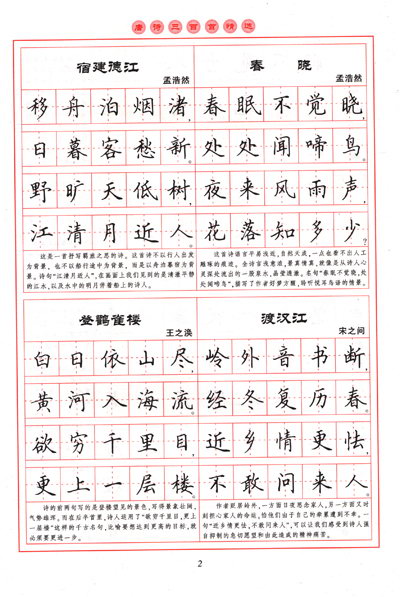 唐诗三百首精选
宿建德江
孟浩然
移舟泊烟渚，
日暮客愁新。
野旷天低树，
江清月近人。
这是一首抒写羁旅之思的诗。这首诗不以行人出发
为背景，也不以船行途中为背景，而是以舟泊暮宿为背
景。诗句“江清月近人”，在画面上我们见到的是清澈平静
的江水，以及水中的明月伴着船上的诗人。
春晓
孟浩然
春眠不觉晓，
处处闻啼鸟。
夜来风雨声，
花落知多少？
这首诗语言平易浅近，自然天成，一点也看不出人工
雕琢的痕迹。全诗言浅意浓，景真情真，就像是从诗人心
灵深处流出的一股泉水，晶莹透澈。名句“春眠不觉晓，处
处闻啼鸟”，描写了作者好梦方醒，聆听悦耳鸟语的情景。
登鹳雀楼
王之涣
白日依山尽，
黄河入海流。
欲穷千里目，
更上一层楼。
诗的前两句写的是登楼望见的景色，写得景象壮阔，
气势雄浑。而在后半首里，诗人运用了“欲穷千里目，更上
一层楼”这样的千古名句，比喻要想达到更高的目标，就
必须要更进一步。
渡汉江
宋之问
岭外音书断，
经冬复历春。
近乡情更怯，
不敢问来人。
作者贬居岭外，一方面日夜思念家人，另一方面又时
刻担心家人的命运，怕他们由于自己的牵累遭到不幸。一
句“近乡情更怯，不敢问来人”，可以让我们感受到诗人强
自抑制的急切愿望和由此造成的精神痛苦。
2